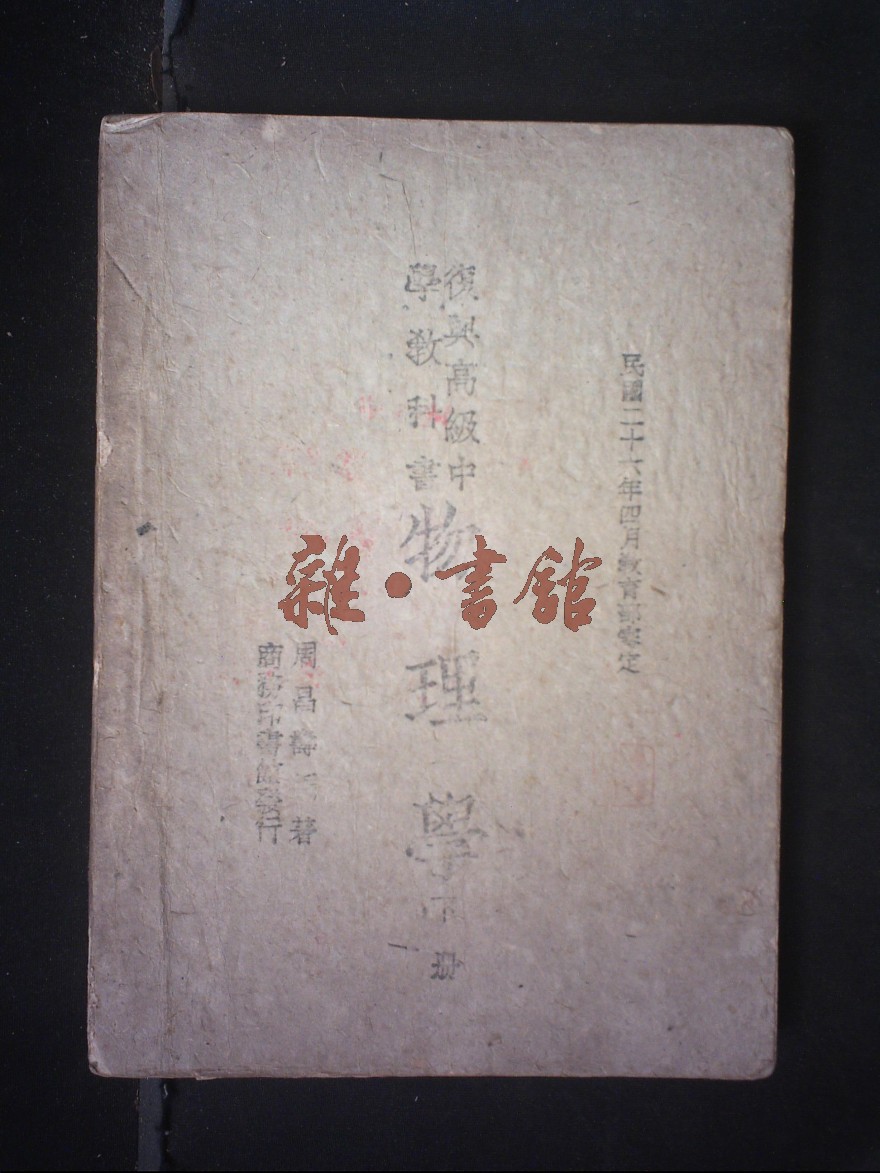 民國二十六年四月教育部審定
復興高級中
學教科書
物理學
下册
周昌壽 著
商務印書館發行
雜·書館